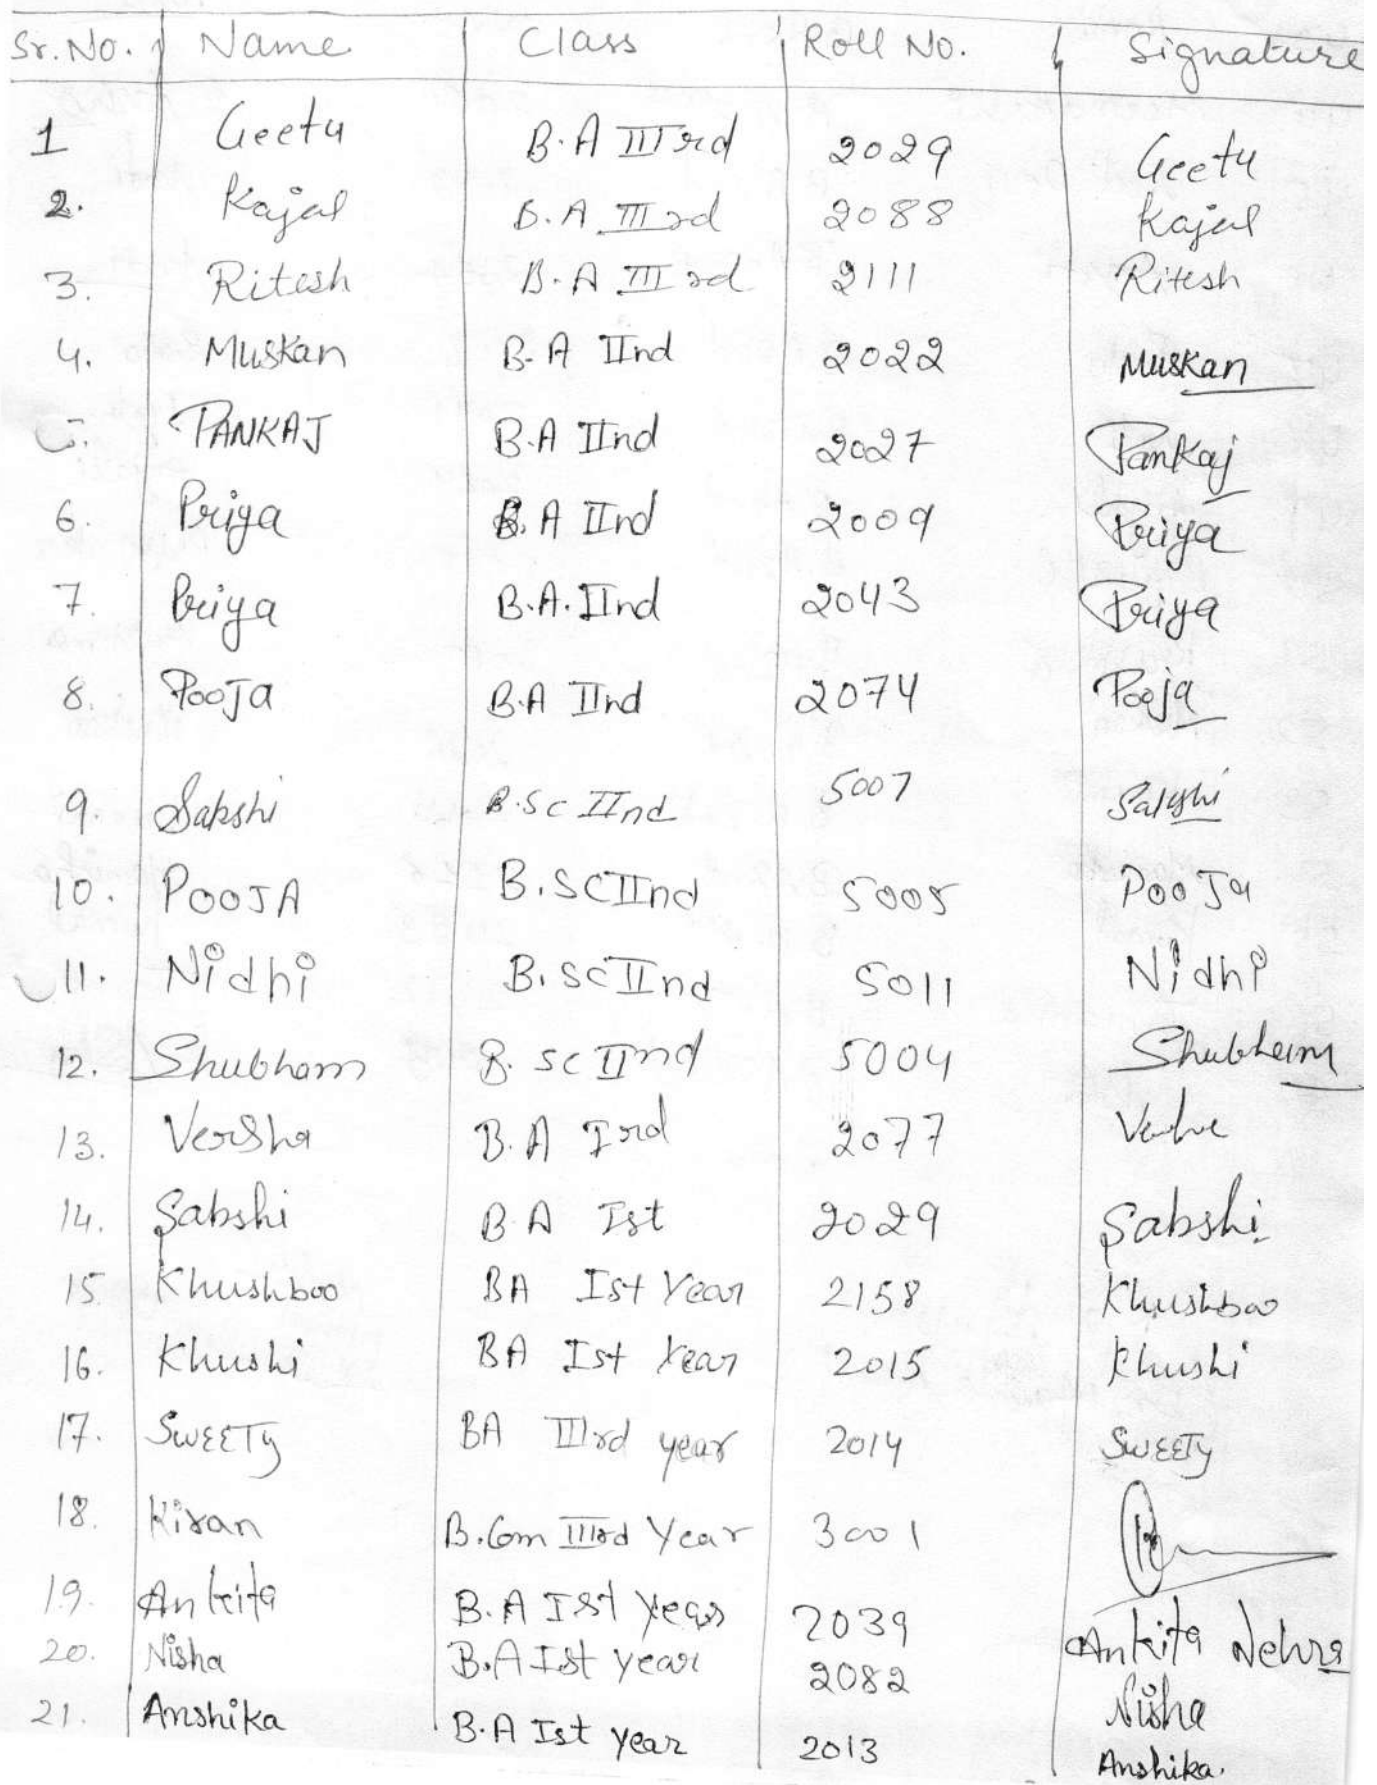 Sr. No. Name Class Roll No. Signature
1 Geetu B.A IIIrd 2029 Geetu
2. Kajal B.A IIIrd 2088 Kajal
3. Ritesh B.A IIIrd 2111 Ritesh
4. Muskan B.A IInd 2022 Muskan
PANKAJ B.A IInd 2027 Pankaj
6. Priya B.A IInd 2009 Priya
7. Priya B.A. IInd 2043 Priya
8. Pooja B.A IInd 2074 Pooja
9. Sakshi B.Sc IInd 5007 Sakshi
10. POOJA B.SC IInd 5005 PooJa
11. Nidhi B.SC IInd 5011 Nidhi
12. Shubham B. SC IInd 5004 Shubham
13. Versha B.A Ird 2077
14. Sakshi B A Ist 2029 Sakshi
15. Khushboo BA Ist Year 2158 Khushboo
16. Khushi BA Ist Year 2015 Khushi
17. SWEETy BA IIIrd year 2014 SWEETy
18. Kiran B.Com IIIrd Year 3001
19. Ankita B.A Ist Year 2039 Ankita Nehra
20. Nisha B.A Ist year 2082 Nisha
21. Anshika B.A Ist year 2013 Anshika.